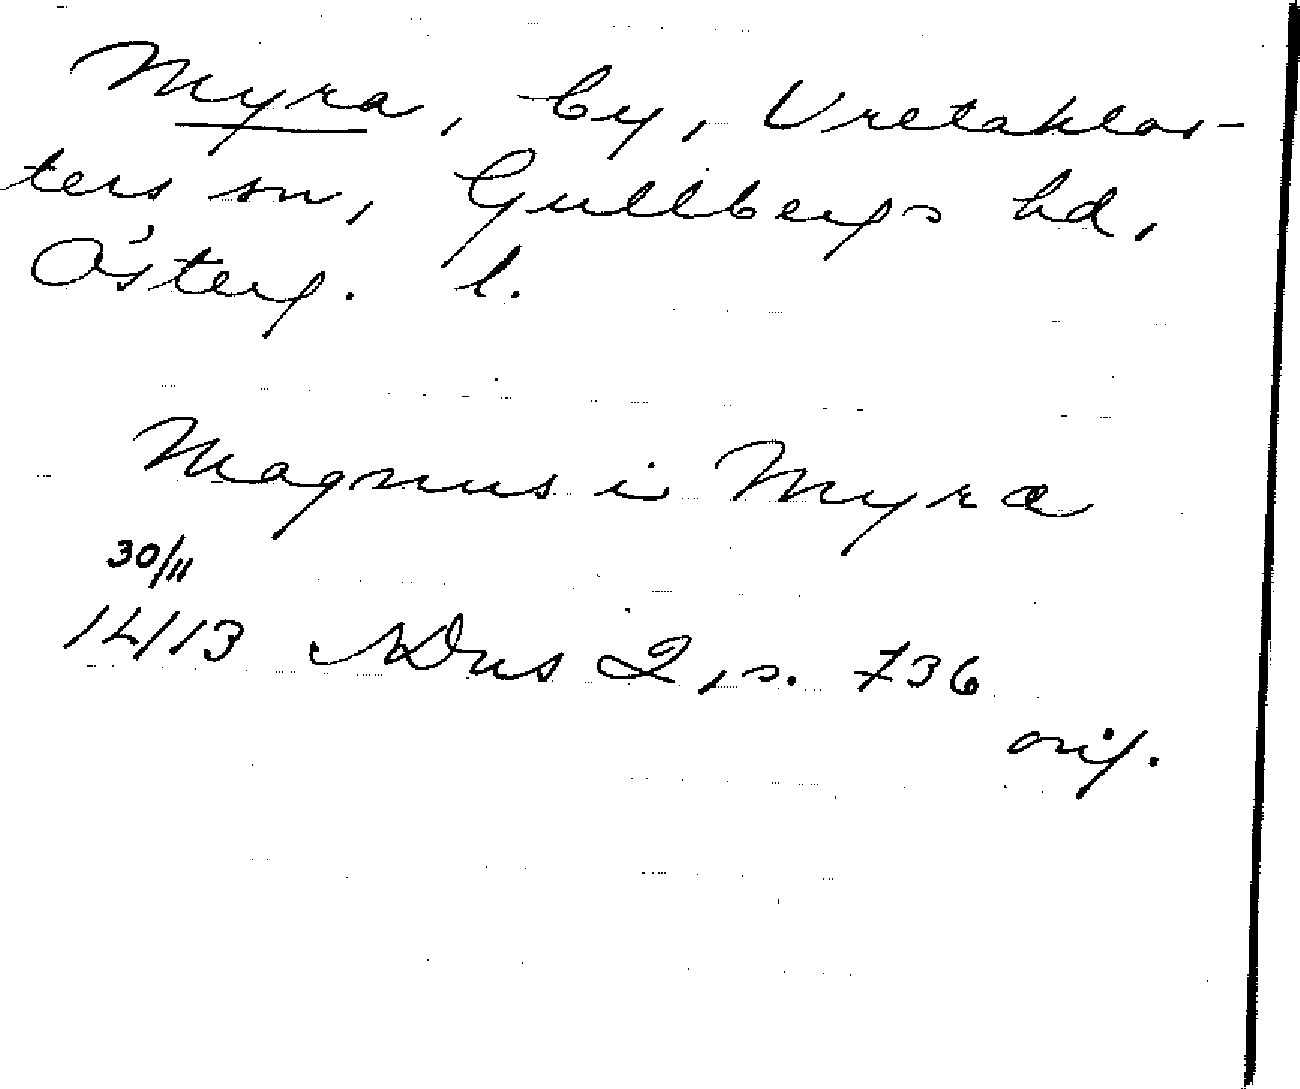 Myra, by, Vretaklos-
ters sn, Gullbergs hd,
Österg. l.
Magnus i Myræ
30/11
1413 NDns 2, s. 736
orig.